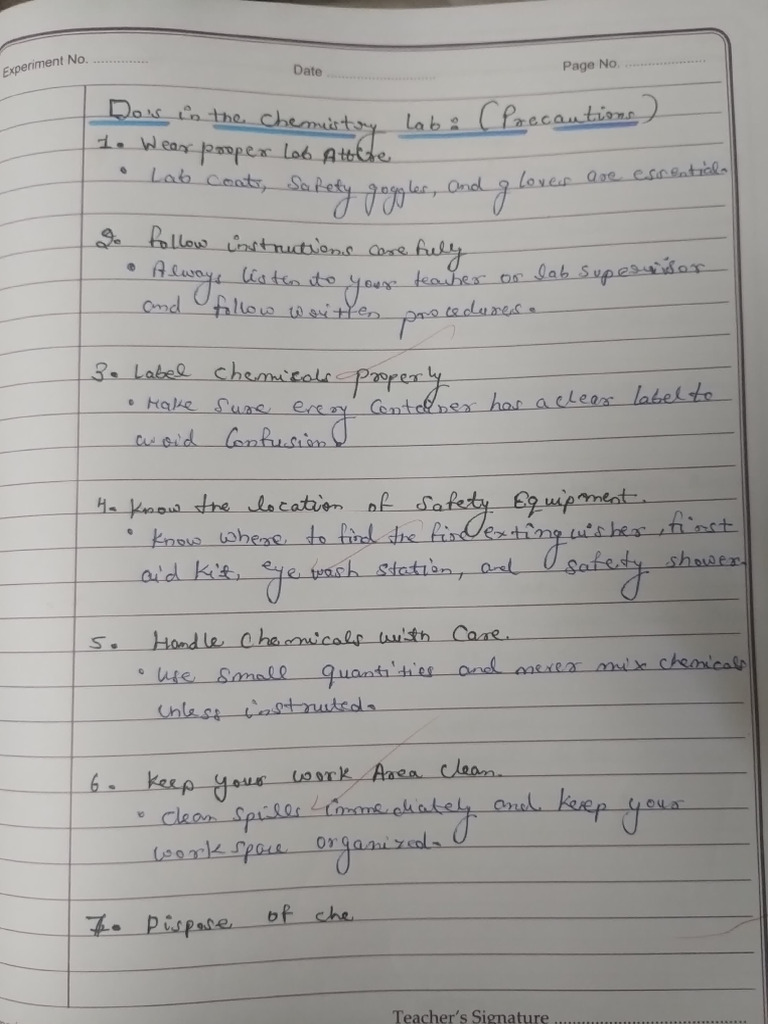 Experiment No. ..............
Date ..............................
Page No. ......................
Do's in the Chemistry Lab: (Precautions)
1. Wear proper Lab Attire
• Lab coats, Safety goggles, and gloves are essential.
2. follow instructions carefully
• Always listen to your teacher or lab supervisor
and follow written procedures.
3. Label Chemicals properly
• Make sure every Container has a clear label to
avoid Confusion
4. Know the location of Safety Equipment.
• Know where to find the fire extinguisher, first
aid kit, eye wash station, and safety shower.
5. Handle Chemicals with Care.
• Use small quantities and never mix chemicals
unless instructed.
6. Keep your work Area Clean.
• Clean spills immediately and keep your
workspace organized.
7. Dispose of che
Teacher's Signature ..........................................